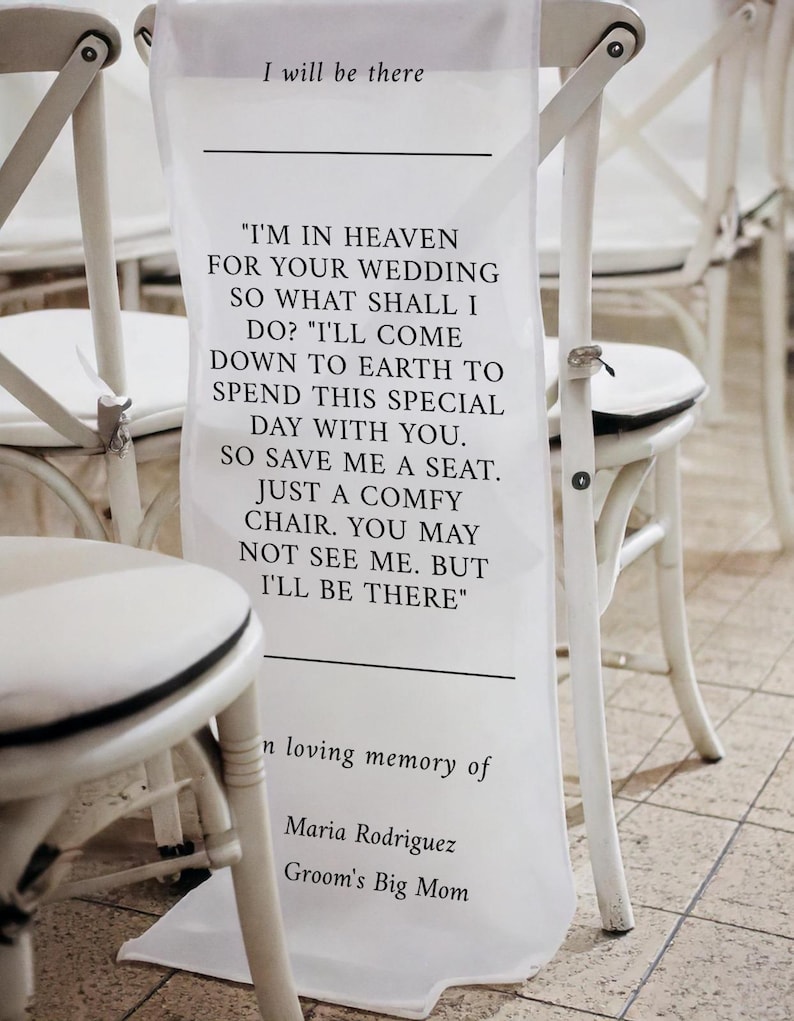 I will be there
"I'M IN HEAVEN
FOR YOUR WEDDING
SO WHAT SHALL I
DO? "I'LL COME
DOWN TO EARTH TO
SPEND THIS SPECIAL
DAY WITH YOU.
SO SAVE ME A SEAT.
JUST A COMFY
CHAIR. YOU MAY
NOT SEE ME. BUT
I'LL BE THERE"
n loving memory of
Maria Rodriguez
Groom's Big Mom